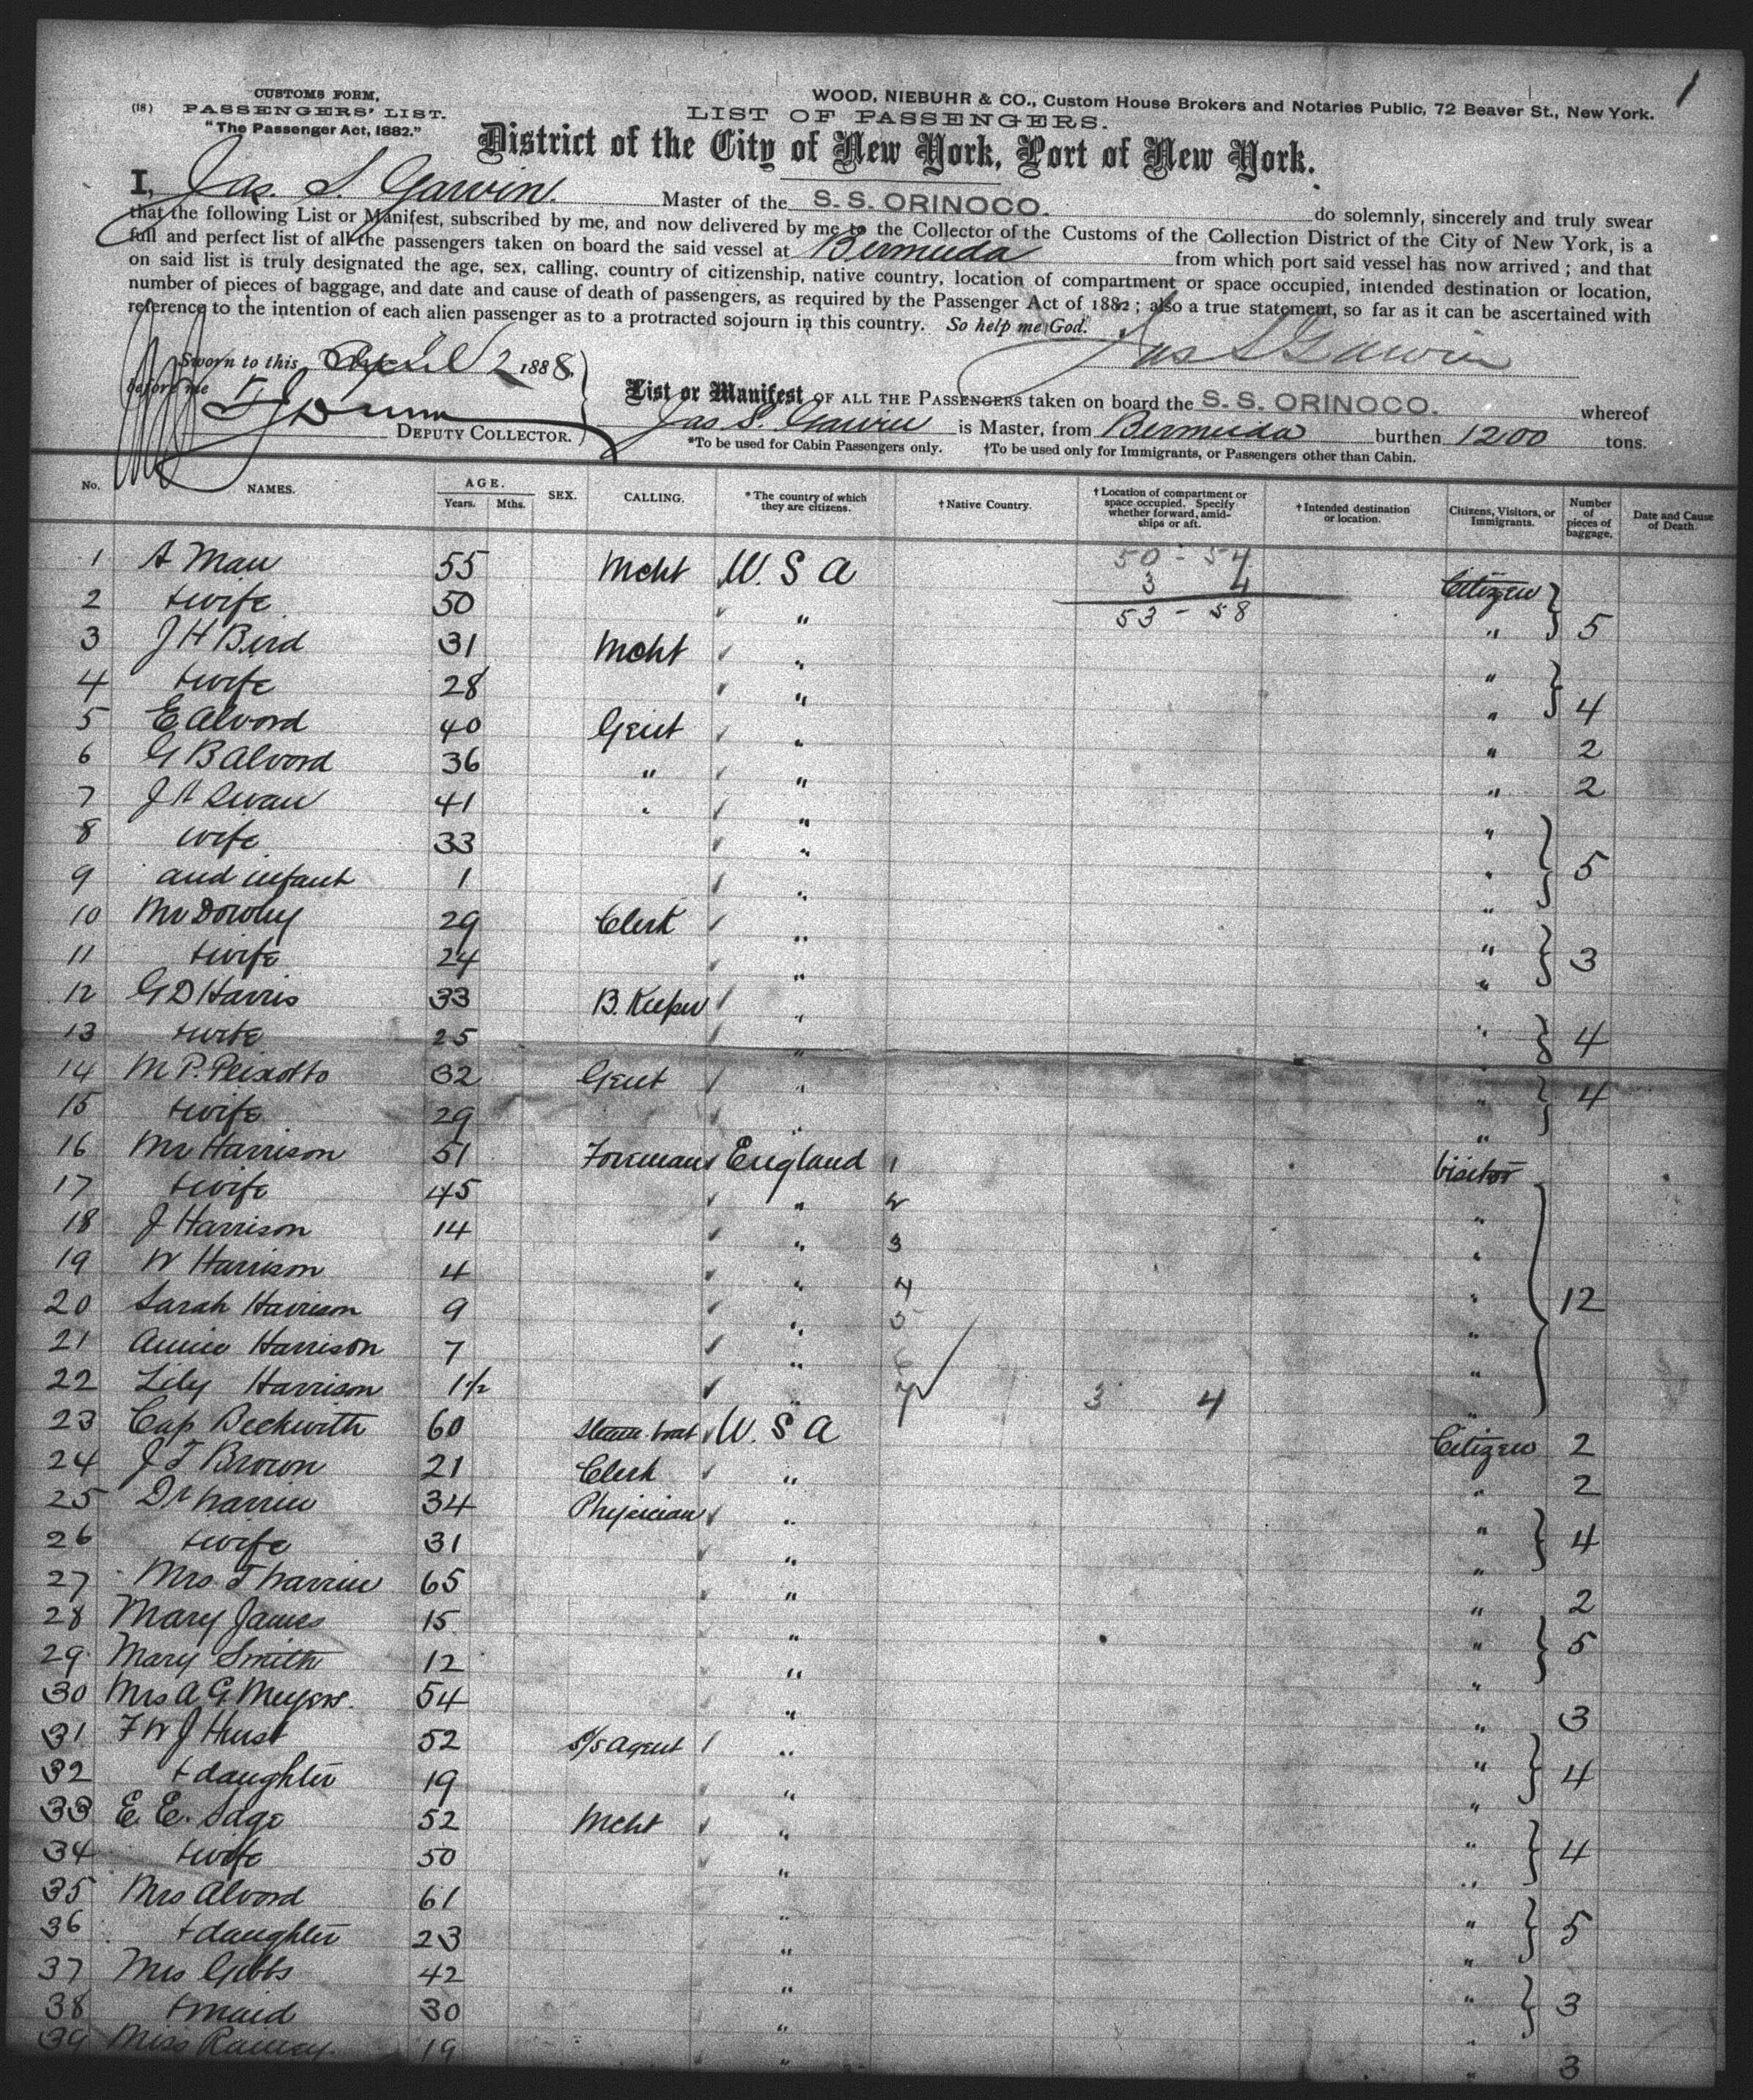 1
CUSTOMS FORM,
(18) PASSENGERS' LIST.
"The Passenger Act, 1882."
WOOD, NIEBUHR & CO., Custom House Brokers and Notaries Public, 72 Beaver St., New York.
LIST OF PASSENGERS.
District of the City of New York, Port of New York.
I, Jas. S. Garvin. Master of the S. S. ORINOCO. do solemnly, sincerely and truly swear
that the following List or Manifest, subscribed by me, and now delivered by me to the Collector of the Customs of the Collection District of the City of New York, is a
full and perfect list of all the passengers taken on board the said vessel at Bermuda from which port said vessel has now arrived; and that
on said list is truly designated the age, sex, calling, country of citizenship, native country, location of compartment or space occupied, intended destination or location,
number of pieces of baggage, and date and cause of death of passengers, as required by the Passenger Act of 1882; also a true statement, so far as it can be ascertained with
reference to the intention of each alien passenger as to a protracted sojourn in this country. So help me God.
Jas S Garvin
Sworn to this April 2 1888.
before me
DEPUTY COLLECTOR.
List or Manifest OF ALL THE PASSENGERS taken on board the S. S. ORINOCO. whereof
Jas S. Garvin is Master, from Bermuda burthen 1200 tons.
*To be used for Cabin Passengers only. †To be used only for Immigrants, or Passengers other than Cabin.
No. NAMES. AGE. Years. Mths. SEX. CALLING. *The country of which they are citizens. †Native Country. †Location of compartment or space occupied. Specify whether forward, amidships or aft. †Intended destination or location. Citizens, Visitors, or Immigrants. Number of pieces of baggage. Date and Cause of Death.
50 - 54
3 4
53 - 58
1 A Man 55 Mcht U. S A Citizen
2 + wife 50 " " 5
3 J H Bird 31 Mcht " "
4 + wife 28 " " 4
5 E Alvord 40 Gent " " 2
6 G B Alvord 36 " " " 2
7 J A Swan 41 " " "
8 wife 33 " " 5
9 and infant 1 " "
10 Mr Dowley 29 Clerk " "
11 + wife 24 " " 3
12 G D Harris 33 B. Keeper " "
13 + wife 25 " " 4
14 M P. Peixotto 32 Gent " "
15 + wife 29 " " 4
16 Mr Harrison 51 Foreman England 1 Visitor
17 + wife 45 " 2 "
18 J Harrison 14 " 3 "
19 W Harrison 4 " 4 "
20 Sarah Harrison 9 " 5 " 12
21 Annie Harrison 7 " 6 "
22 Lily Harrison 1½ " 7 3 4 "
23 Cap Beckwith 60 Steam boat U. S A Citizen 2
24 J T Brown 21 Clerk " " 2
25 Dr 34 Physician " "
26 + wife 31 " " 4
27 Mrs 65 " " 2
28 Mary James 15 " "
29 Mary Smith 12 " " 5
30 Mrs A G Meyers. 54 " " 3
31 F W J Hurst 52 S/S Agent " "
32 + daughter 19 " " 4
33 E. E. Sage 52 Mcht " "
34 + wife 50 " " 4
35 Mrs Alvord 61 " "
36 + daughter 23 " " 5
37 Mrs Gibbs 42 " "
38 + maid 30 " " 3
39 Miss 19 " " 3